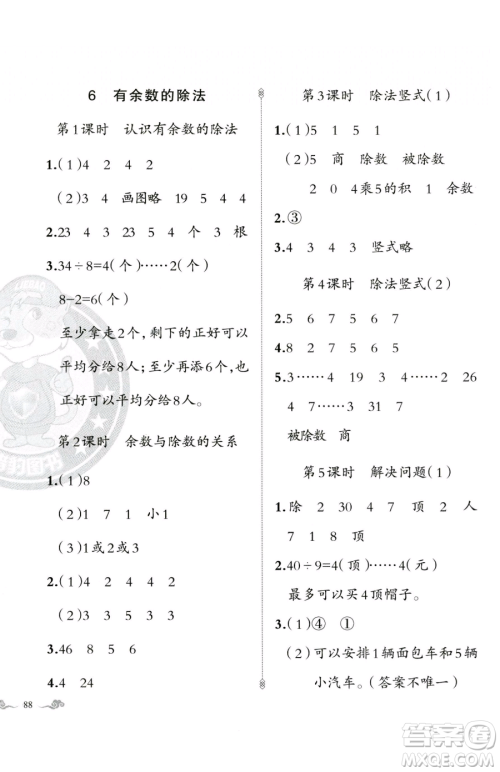 6 有余数的除法
第1课时 认识有余数的除法
1.(1)4 2 4 2
(2)3 4 画图略 19 5 4 4
2.23 4 4 3 个 根
3.34÷8=4(个)……2(个)
8-2=6(个)
至少拿走2个,剩下的正好可以
平均分给8人;至少再添6个,也
正好可以平均分给8人。
第2课时 余数与除数的关系
1.(1)8
(2)1 7 1 小1
(3)1或2或3
2.(1)4 2 4 4 2
(2)3 4 4 3
3.46 8 5 6
4.4 24
88
第3课时 除法竖式(1)
1.(1)5 1 5 1
(2)5 商 除数 被除数
2 0 4乘5的积 1 余数
2.③
3.4 3 8 3 竖式略
第4课时 除法竖式(2)
2.5 7 6 5 6 7
4.8 2 7 7
5.3…… 4 19 3 4…… 2 26
4 3…… 4 3 31 7
被除数 商
第5课时 解决问题(1)
1.除 2 30 4 7 顶 2 人
7 1 8 顶
2.40÷9=4(顶)……4(元)
最多可以买4顶帽子。
3.(1)④ ①
(2)可以安排1辆面包车和5辆
小汽车。(答案不唯一)
答案圈
MXQE.COM